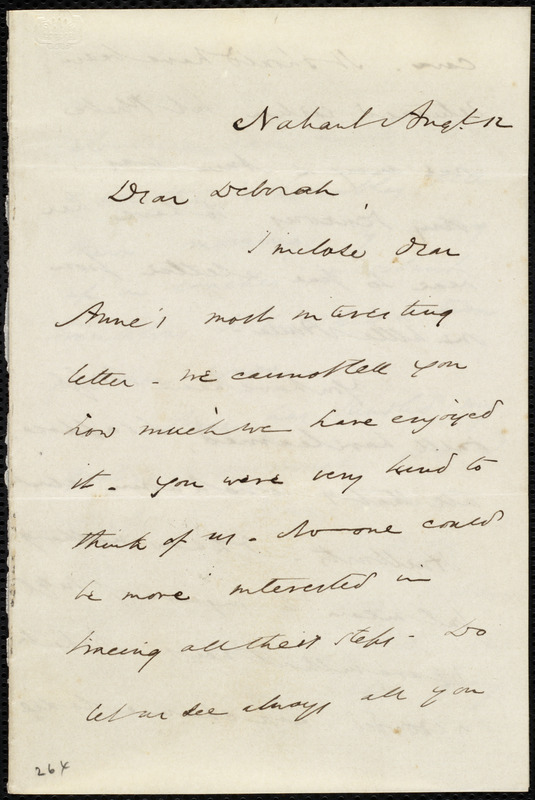 Nahant Augt. 12
Dear Deborah,
I inclose dear
Anne's most interesting
letter - we cannot tell you
how much we have enjoyed
it - you were very kind to
think of us - No one could
be more interested in
tracing all their steps - Do
let us see always all you
264